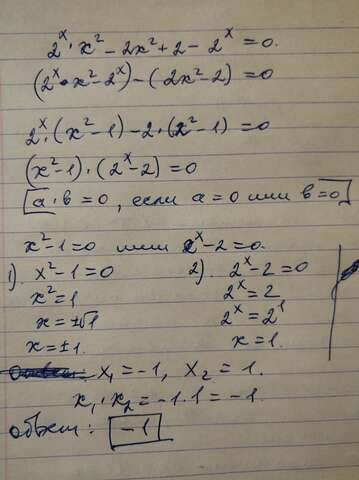 2^x · x² − 2x² + 2 − 2^x = 0.
(2^x · x² − 2^x) − (2x² − 2) = 0
2^x · (x² − 1) − 2 · (x² − 1) = 0
(x² − 1) · (2^x − 2) = 0
a · b = 0, если a = 0 или b = 0
x² − 1 = 0 или 2^x − 2 = 0.
1). x² − 1 = 0 2). 2^x − 2 = 0
x² = 1 2^x = 2
x = ±√1 2^x = 2^1
x = ±1. x = 1.
x₁ = −1, x₂ = 1.
x₁ · x₂ = −1 · 1 = −1.
ответ: −1